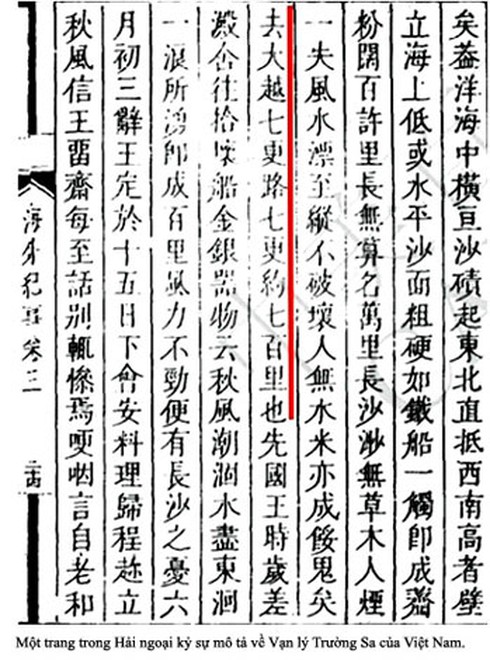 矣蓋洋海中橫亘沙磧起東北直抵西南高者壁
立海上低或水平沙面粗硬如鐵船一觸即成齏
粉闊百許里長無算名萬里長沙渺無草木人煙
一夫風水漂至縱不破壞人無水米亦成餒鬼矣
去大越七更路七更約七百里也先國王時歲差
澱舍往拾壞船金銀器物云秋風潮涸水盡東洄
一浪所湧即成百里風力不勁便有長沙之憂六
月初三辭王定於十五日下會安料理歸程趂立
秋風信王畱齋每至話别輒慘焉哽咽言自老和
海外紀事卷三
Một trang trong Hải ngoại ký sự mô tả về Vạn lý Trường Sa của Việt Nam.